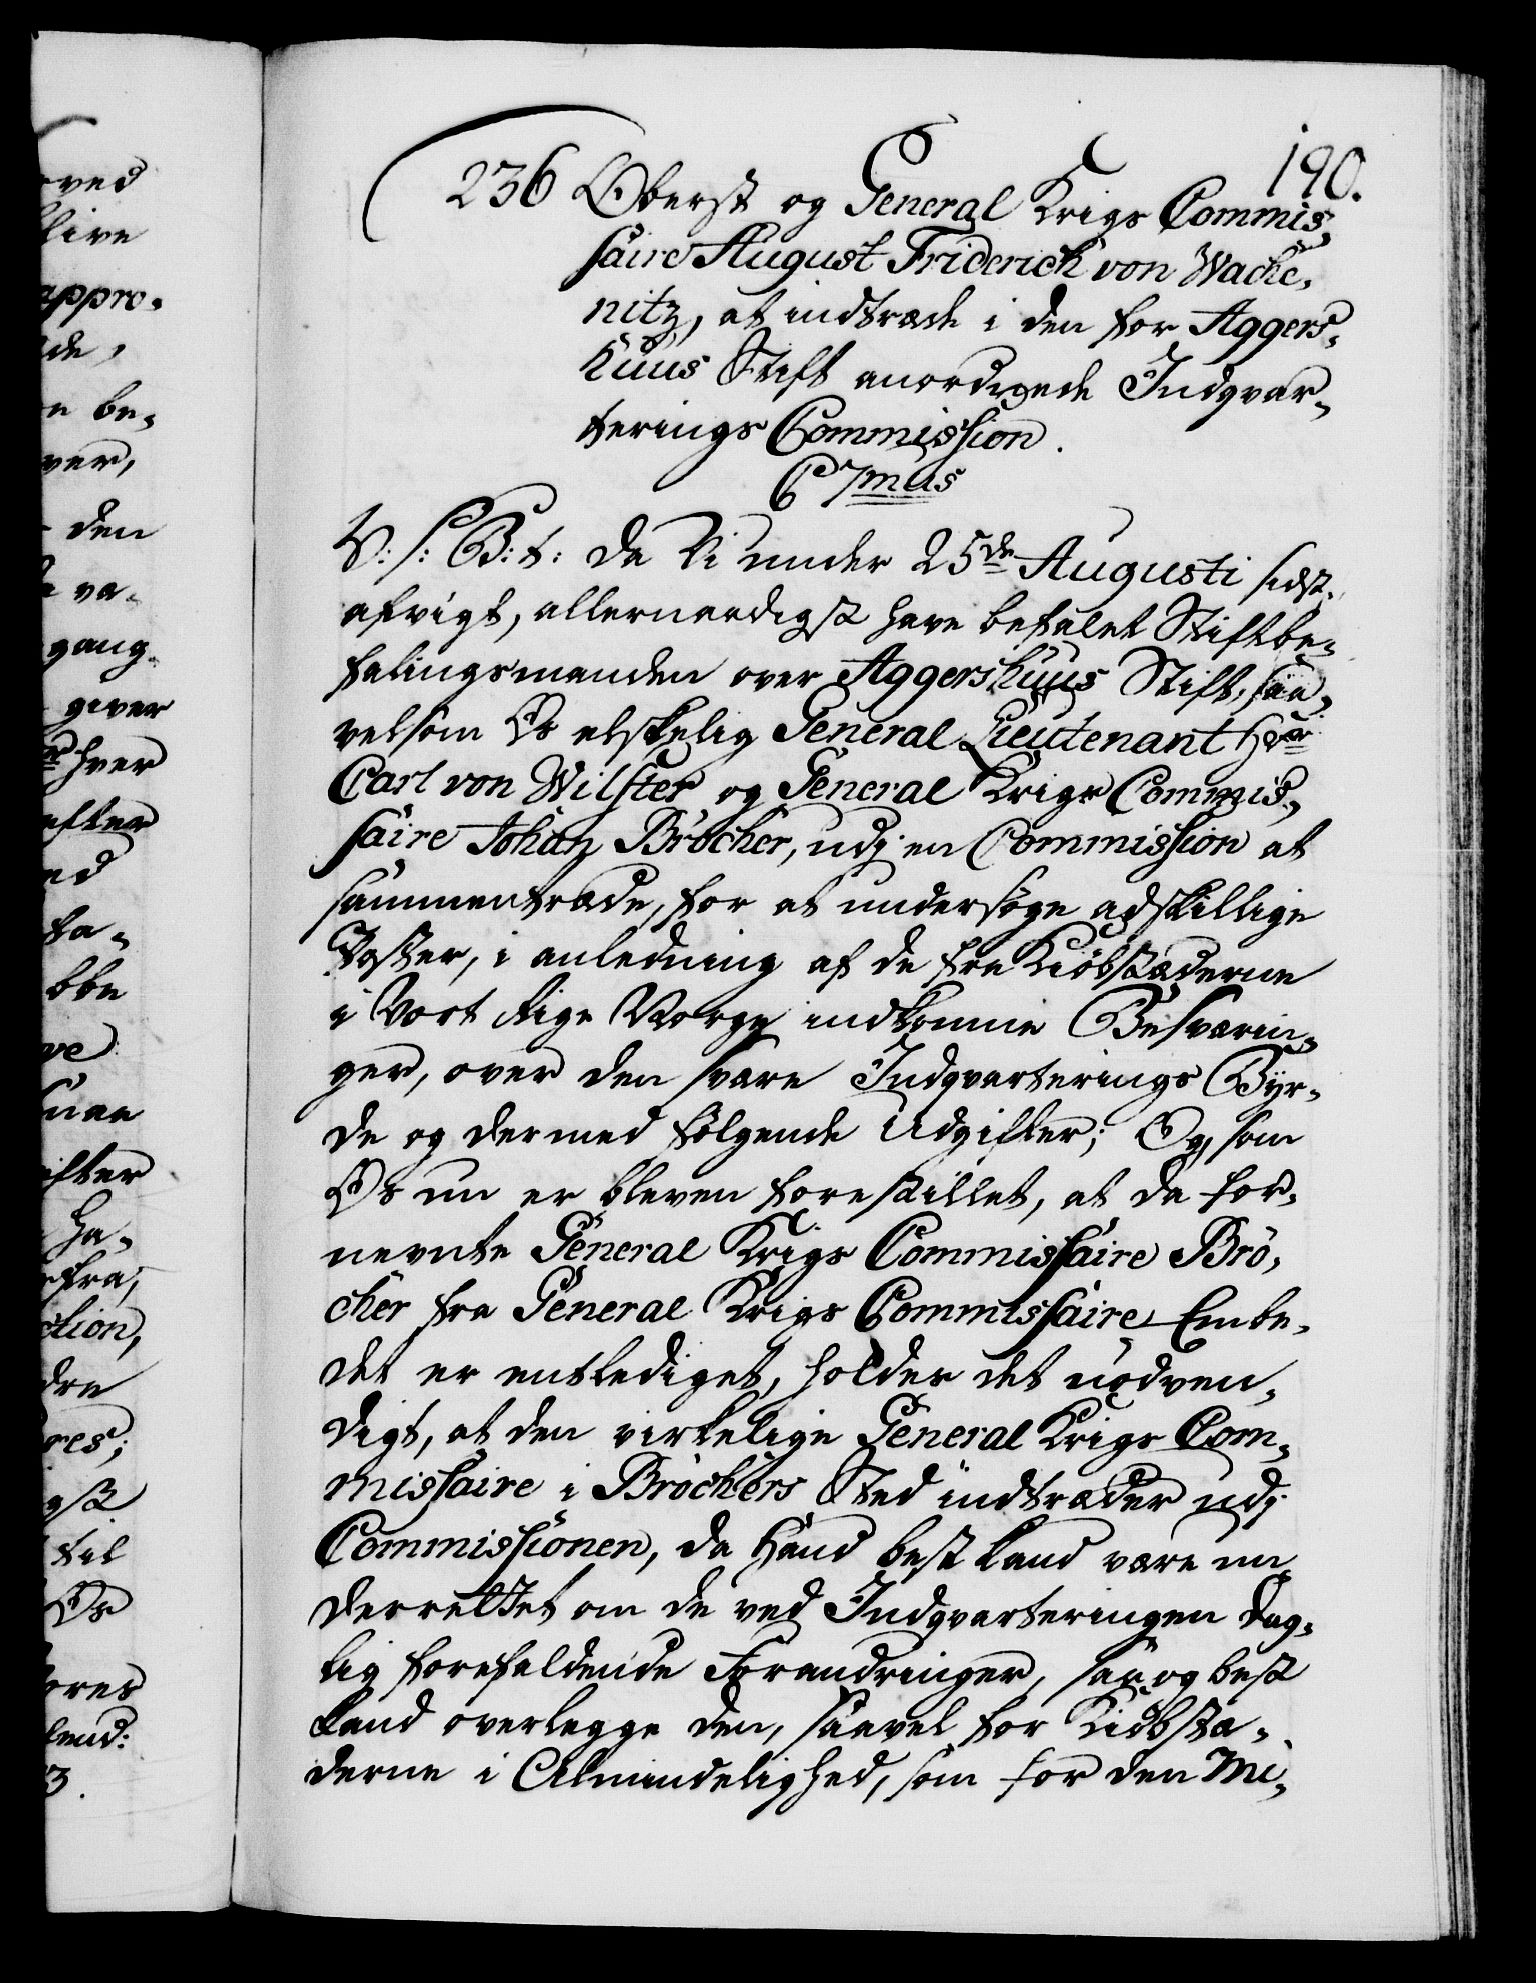 190.
236 Oberst og General Krigs Commis,
saire August Friderich von Wache,
nitz, at indtræde i den for Aggers,
huus Stift anordnede Indqvar,
terings Commission.
C 7mus
V: S: G: B: t: Da Vi under 25de Augusti sidst,
afvigt, allernaadigst have befalet Stiftbe,
falingsmanden over Aggershuus Stift, saa,
velsom Os elskelig General Lieutenant Herr
Carl von Wilster og General Krigs Commis,
saire Johan Bröcher, udj en Commission at
sammentræde, for at undersøge adskillige
Poster, i anledning af de fra Kiøbstæderne
i Vort Rige Norge indkomne Besværin,
ger, over den svare Indqvarterings Byr,
de og dermed følgende Udgifter; Og som
Os nu er bleven forestillet, at da for,
nevnte General Krigs Commissaire Brö,
cher fra General Krigs Commissaire Embe,
det er entlediget, holdes det nødven,
digt, at den virkelige General Krigs Com,
missaire i Bröchers Sted indtræder udj
Commissionen, da Hand best kand være un,
derrettet om de ved Indqvarteringen dag,
lig forefaldende Forandringer, saa og best
kand overlegge den, saavel for Kiøbstæ,
derne i Almindelighed, som for den Mi,